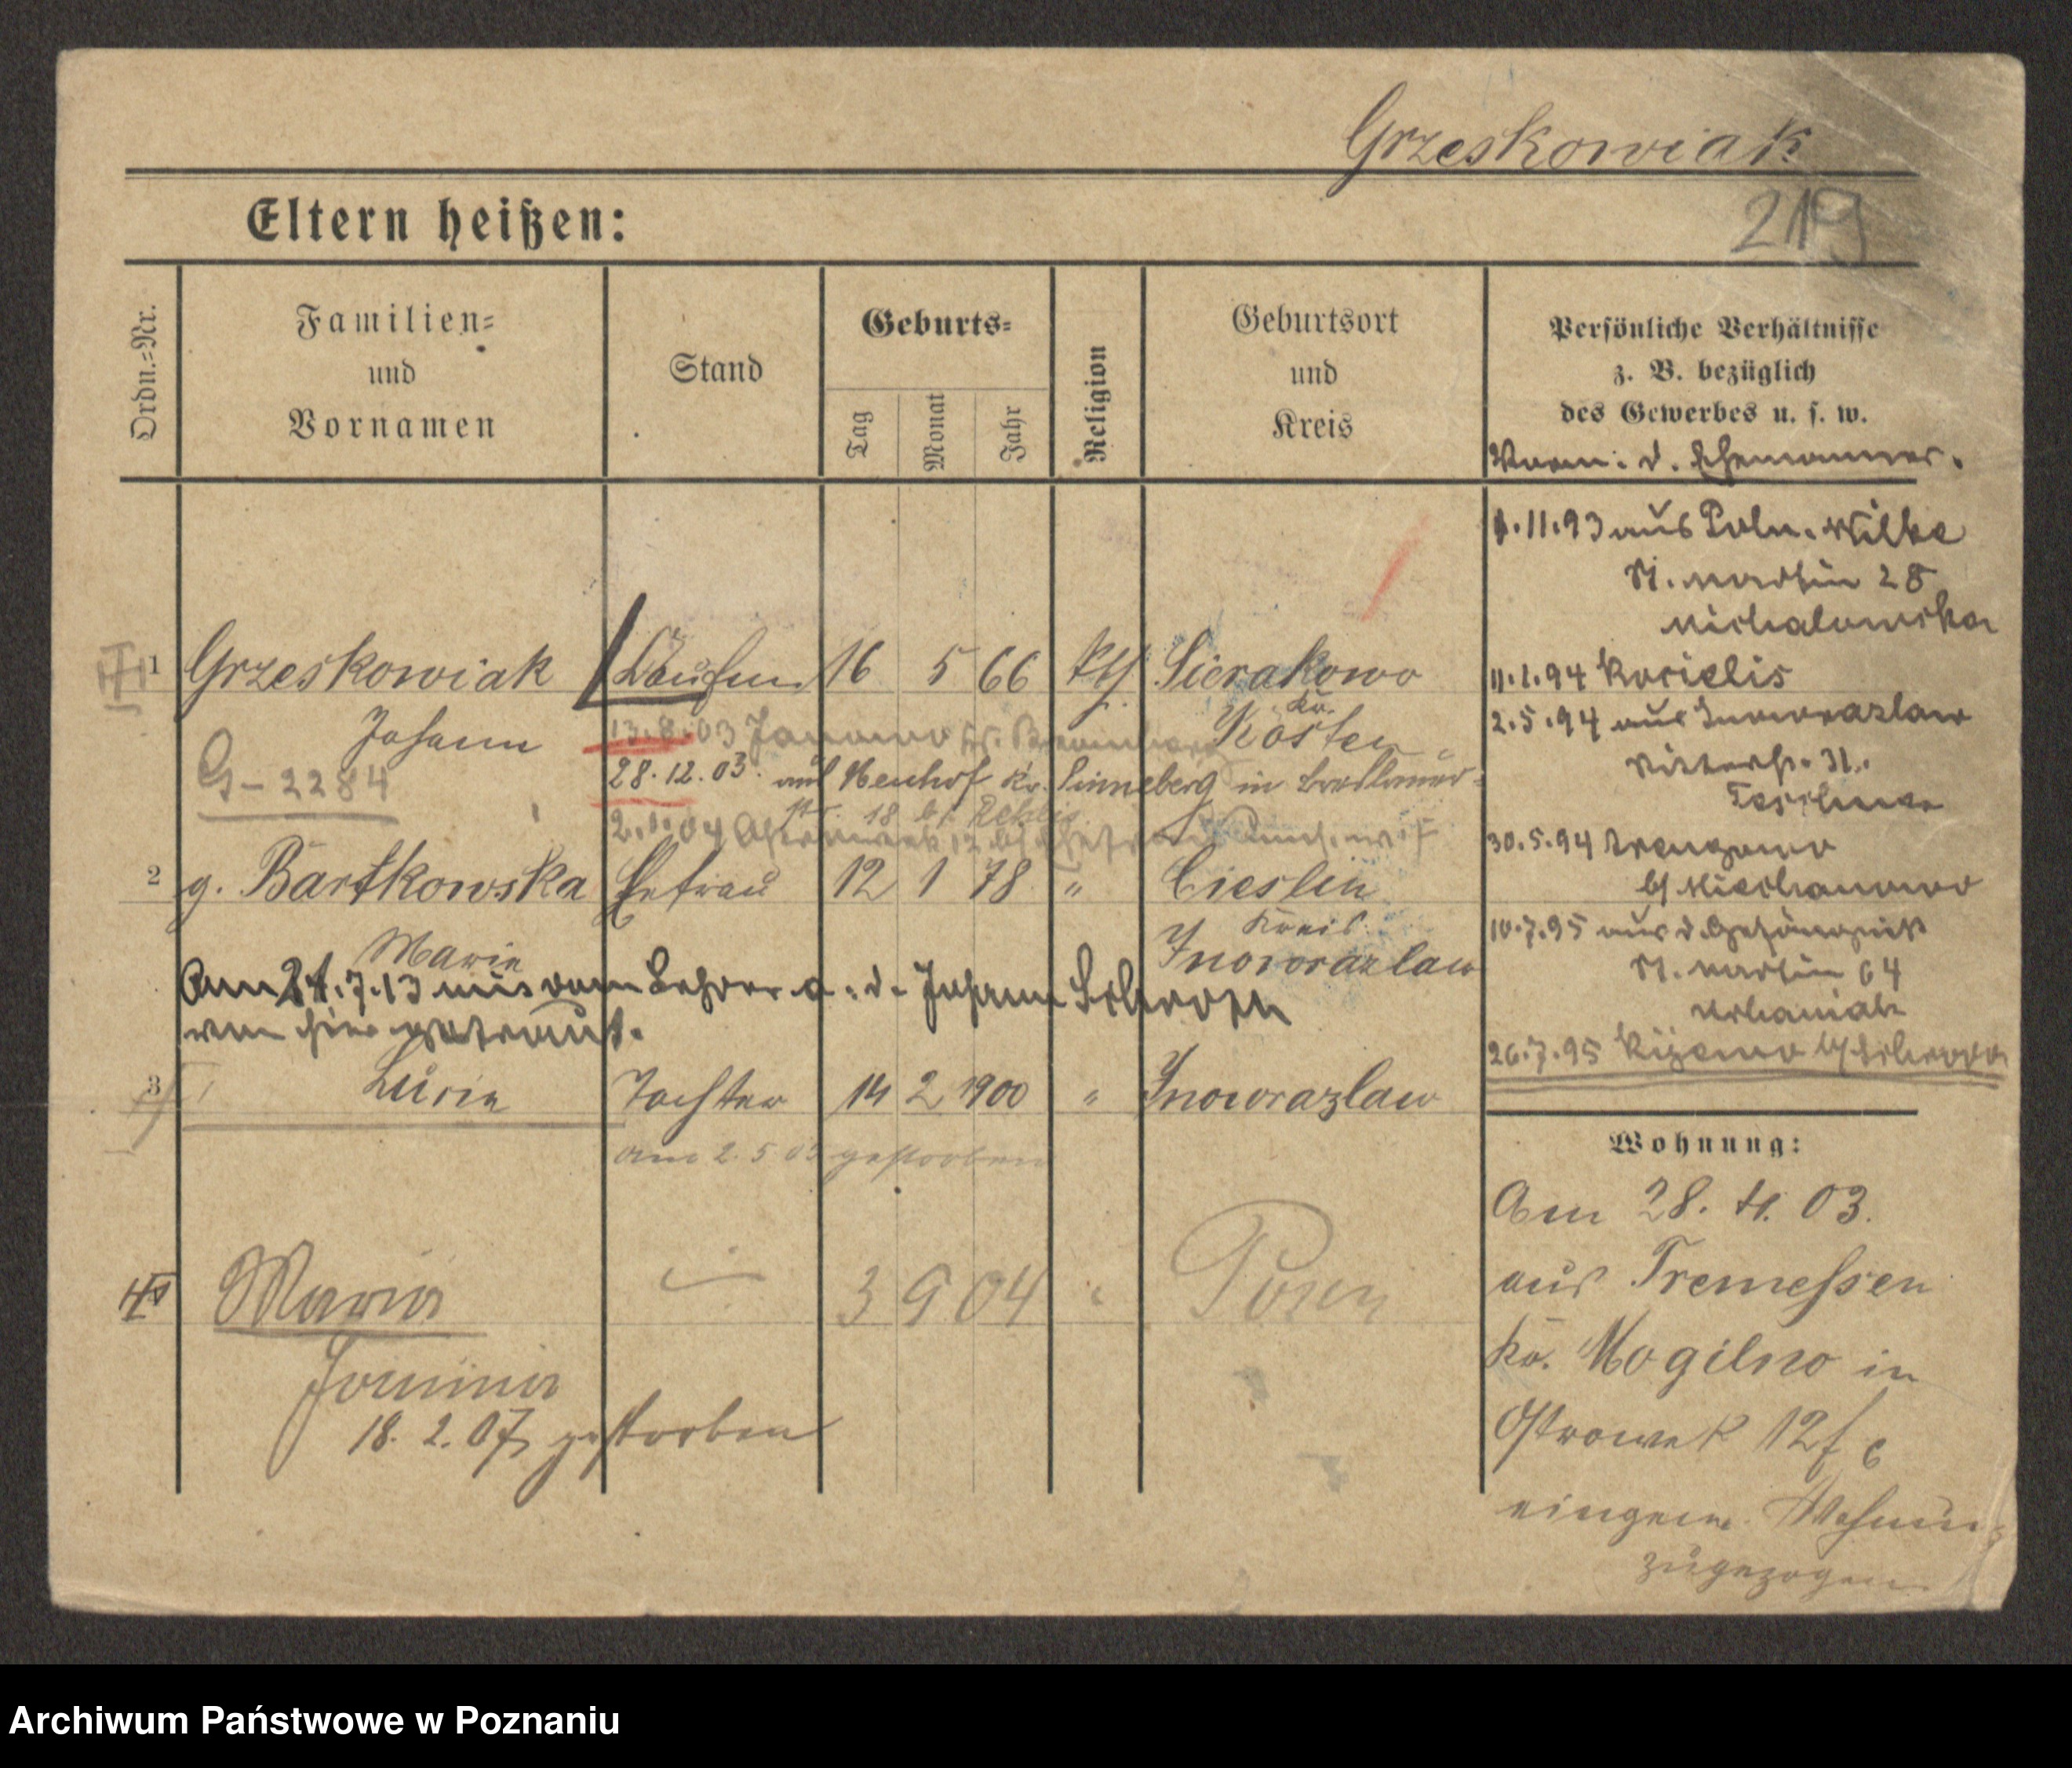 Grzeskowiak
219
Eltern heißen:
Ordn.=Nr.
Familien=
und
Vornamen
Stand
Geburts=
Tag
Monat
Jahr
Religion
Geburtsort
und
Kreis
Persönliche Verhältnisse
z. B. bezüglich
des Gewerbes u. s. w.
Vorm. d. Ehemannes.
1.11.93 aus Poln. Wilke
St. Martin 28
Michalowska
11.1.94
2.5.94 aus Inowrazlaw
Ritterst. 31.
30.5.94
b/
10.7.95 aus d. Gefängniß
St. Martin 64
Urbaniak
26.7.95
1 Grzeskowiak 16 5 66 kth Sierakowo
Johann
Kr.
Kosten
13.8.03 Janowo Kr.
G-2284
28.12.03. auf Neuhof Kr. in
18 b/
2.1.04
2 g. Bartkowska Ehefrau 12 1 78 " Cieslin
Marie
Kreis
Inowrazlaw
Am 24.7.13 mit dem Lehrer a. d. Johann
von hier getraut.
3 Lucie Tochter 14 2 1900 " Inowrazlaw
am 2.5 03 gestorben
Maria 3 9 04 " Posen
Joanna
18. 2. 07 gestorben
Wohnung:
Am 28. 11. 03.
aus Tremessen
Kr. Mogilno in
Ostrowek 12
Wohnung
zugezogen
Archiwum Państwowe w Poznaniu